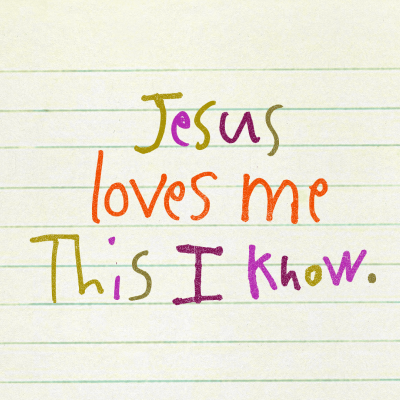 Jesus
loves me
This I know.